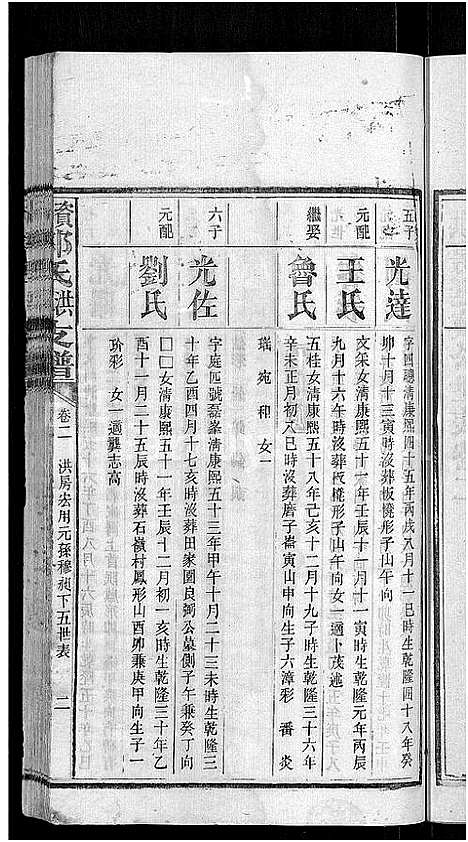 五子
光達
字四聰清康熙四十五年丙戌八月十一巳時生乾隆四十八年癸
卯十月十三寅時沒葬板櫈形子山午向
元配
王氏
文采女清康熙五十一年壬辰十月十一寅時生乾隆元年丙辰
九月十六午時沒葬板櫈形子山午向女一適卜茂述
繼娶
魯氏
五桂女清康熙五十八年己亥十二月十九子時生乾隆三十六年
辛未正月初八巳時沒葬磨子崙寅山申向生子六漳彩 番炎
瑞宛和女一
六子
光佐
字庭四號磊峯清康熙五十三年甲午十月二十三未時生乾隆三
十年乙酉四月十七亥時沒葬田家園良獨公墓側子午兼癸丁向
元配
劉氏
□□女清康熙五十一年壬辰十二月初一亥時生乾隆三十年乙
酉十一月二十五辰時沒葬石嶺村鳳形山酉卯兼庚甲向生子一
玠彩 女一適龔志高
氏洪支譜
卷二 洪房宏用元孫穆昶下五世表 二